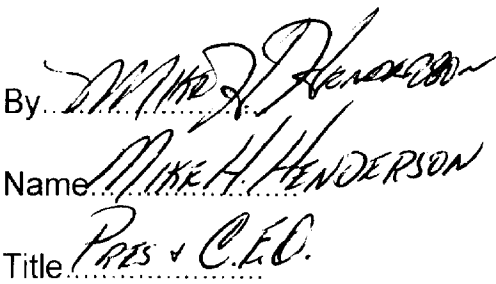 By Mike H Henderson
Name Mike H. Henderson
Title Pres & C.E.O.